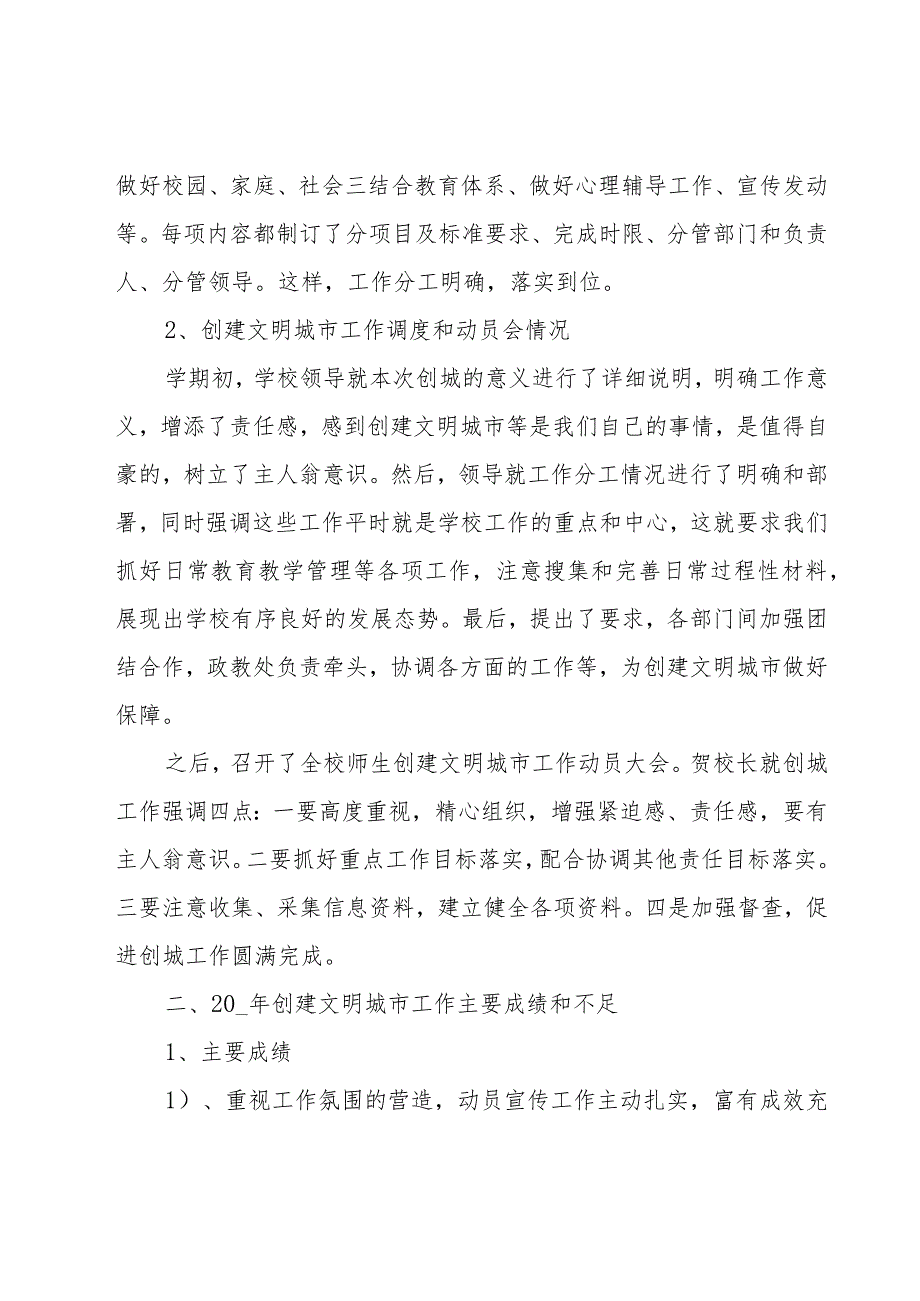 做好校园、家庭、社会三结合教育体系、做好心理辅导工作、宣传发动
等。每项内容都制订了分项目及标准要求、完成时限、分管部门和负责
人、分管领导。这样，工作分工明确，落实到位。
2、创建文明城市工作调度和动员会情况
学期初，学校领导就本次创城的意义进行了详细说明，明确工作意
义，增添了责任感，感到创建文明城市等是我们自己的事情，是值得自
豪的，树立了主人翁意识。然后，领导就工作分工情况进行了明确和部
署，同时强调这些工作平时就是学校工作的重点和中心，这就要求我们
抓好日常教育教学管理等各项工作，注意搜集和完善日常过程性材料，
展现出学校有序良好的发展态势。最后，提出了要求，各部门间加强团
结合作，政教处负责牵头，协调各方面的工作等，为创建文明城市做好
保障。
之后，召开了全校师生创建文明城市工作动员大会。贺校长就创城
工作强调四点：一要高度重视，精心组织，增强紧迫感、责任感，要有
主人翁意识。二要抓好重点工作目标落实，配合协调其他责任目标落实。
三要注意收集、采集信息资料，建立健全各项资料。四是加强督查，促
进创城工作圆满完成。
二、20_年创建文明城市工作主要成绩和不足
1、主要成绩
1）、重视工作氛围的营造，动员宣传工作主动扎实，富有成效充